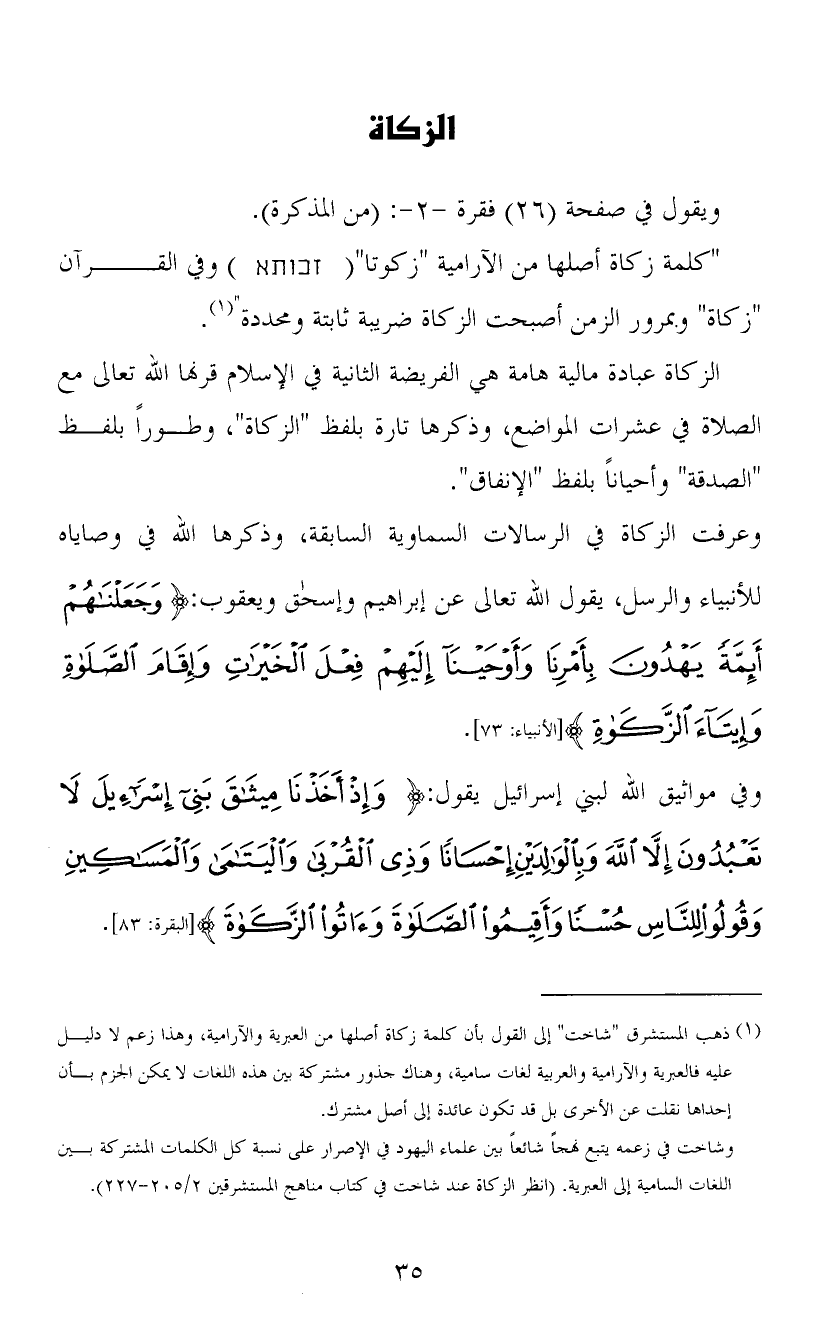 الزكاة
ويقول في صفحة (٢٦) فقرة -٢-: (من المذكرة).
"كلمة زكاة أصلها من الآرامية "زكوتا"( זכותא ) وفي القـــــــرآن
"زكاة" وبمرور الزمن أصبحت الزكاة ضريبة ثابتة ومحددة"(١).
الزكاة عبادة مالية هامة هي الفريضة الثانية في الإسلام قرنها الله تعالى مع
الصلاة في عشرات المواضع، وذكرها تارة بلفظ "الزكاة"، وطـــوراً بلفـــظ
"الصدقة" وأحياناً بلفظ "الإنفاق".
وعرفت الزكاة في الرسالات السماوية السابقة، وذكرها الله في وصاياه
للأنبياء والرسل، يقول الله تعالى عن إبراهيم وإسحٰق ويعقوب:﴿ وَجَعَلْنَٰهُمْ
أَئِمَّةً يَهْدُونَ بِأَمْرِنَا وَأَوْحَيْنَآ إِلَيْهِمْ فِعْلَ ٱلْخَيْرَٰتِ وَإِقَامَ ٱلصَّلَوٰةِ
وَإِيتَآءَ ٱلزَّكَوٰةِ ﴾[الأنبياء: ٧٣].
وفي مواثيق الله لبني إسرائيل يقول:﴿ وَإِذْ أَخَذْنَا مِيثَٰقَ بَنِىٓ إِسْرَٰٓءِيلَ لَا
تَعْبُدُونَ إِلَّا ٱللَّهَ وَبِٱلْوَٰلِدَيْنِ إِحْسَانًا وَذِى ٱلْقُرْبَىٰ وَٱلْيَتَٰمَىٰ وَٱلْمَسَٰكِينِ
وَقُولُوا۟ لِلنَّاسِ حُسْنًا وَأَقِيمُوا۟ ٱلصَّلَوٰةَ وَءَاتُوا۟ ٱلزَّكَوٰةَ ﴾[البقرة: ٨٣].
(١) ذهب المستشرق "شاخت" إلى القول بأن كلمة زكاة أصلها من العبرية والآرامية، وهذا زعم لا دليـــل
عليه فالعبرية والآرامية والعربية لغات سامية، وهناك جذور مشتركة بين هذه اللغات لا يمكن الجزم بـــأن
إحداها نقلت عن الأخرى بل قد تكون عائدة إلى أصل مشترك.
وشاخت في زعمه يتبع نهجاً شائعاً بين علماء اليهود في الإصرار على نسبة كل الكلمات المشتركة بـــين
اللغات السامية إلى العبرية. (انظر الزكاة عند شاخت في كتاب مناهج المستشرقين ٢٠٥/٢-٢٢٧).
٣٥